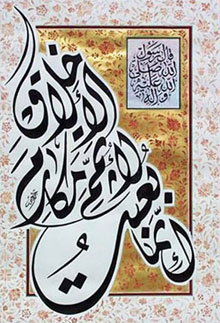 قال رسول
الله صلى
الله عليه
وآله
إنما بعثت
لأتمم مكارم
الأخلاق